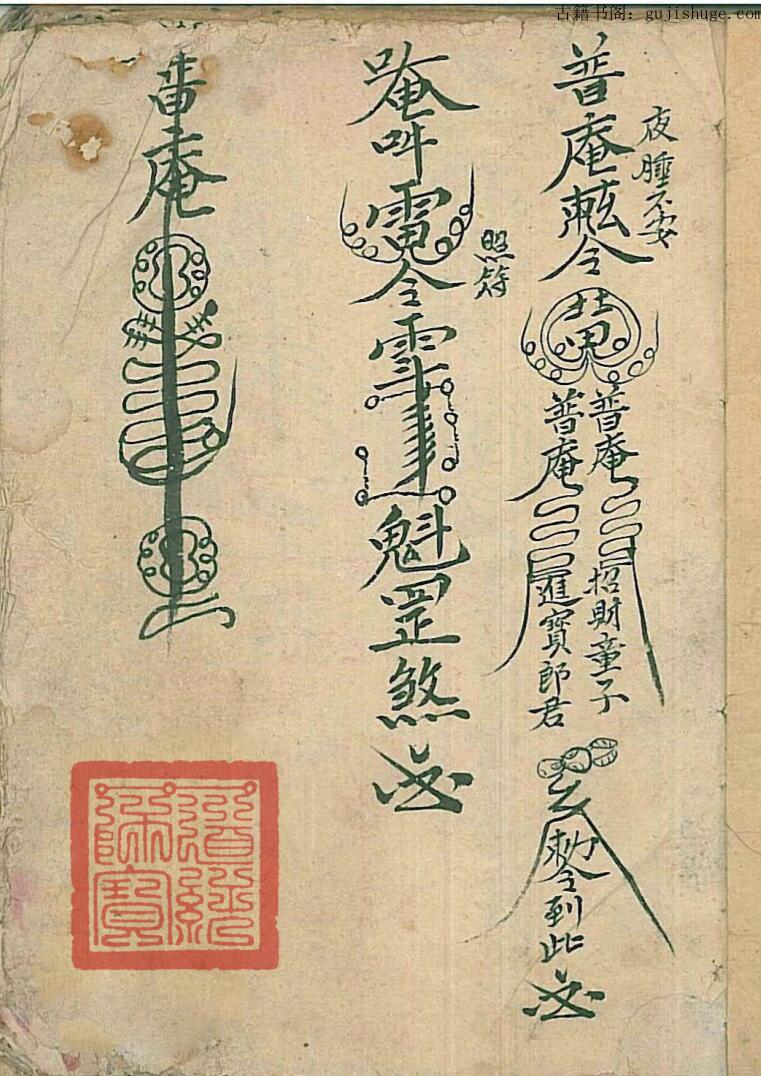 古籍书阁：gujishuge.com
夜睡不安
普庵勅令
普庵
招財童子
普庵
進寶郎君
勅令到此
照符
唵吽
令
魁罡煞
普庵
道經師寶